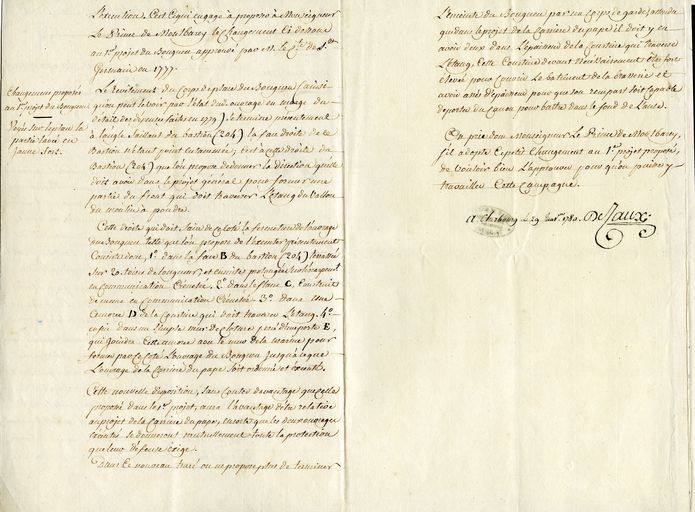 l'exécution. C'est ce qui engage à proposer à Monseigneur
Le Prince de Montbarey le changement ci dessous
au 1.er projet du Bouguen approuvé par M. le C.te de S.t
Germain en 1777.
Changement proposé
au 1.er projet du Bouguen
Voyés sur le plan la
partie lavée en
jaune
Le revêtement du Corps de place du Bouguen (ainsi
qu'on peut le voir par l'état des ouvrages en marge du
détail des dépenses faites en 1779) se termine présentement
à l'angle saillant du bastion (204) la face droite de ce
Bastion n'étant point entamée; c'est à cette droite du
Bastion (204) que l'on propose de donner la direction qu'elle
doit avoir dans le projet général pour former une
partie du front qui doit traverser l'Etang du Vallon
du moulin à poudre.
Cette droite qui doit, faire de ce côté la fermeture de l'ouvrage
du Bouguen telle que l'on propose de l'exécuter présentement
Consistera donc, 1.o dans la face B du bastion (204)
sur 20. toises de longueur, et ensuite prolongée
en communication Crenelée. 2.o dans le flanc C, Construit
de même en Communication Crenelée. 3.o dans une
Amorce D de la Courtine qui doit traverser l'Etang. 4.o
enfin dans un simple mur de cloture percé d'une porte E,
qui joindra cette amorce avec le mur de la marine pour
fermer par ce côté l'ouvrage du Bouguen jusqu'à ce que
l'ouvrage de la Corne du pape soit ordonné et exécuté.
Cette nouvelle disposition, sans couter davantage que celle
proposée dans le 1.er projet, aura l'avantage d'être relative
au projet de la Corne du pape, en sorte que les deux ouvrages
exécutés se donneront mutuellement toute la protection
que leur défense exige.
Dans ce nouveau tracé on ne propose plus de terminer
l'Enceinte du Bouguen par un Corps de garde, attendu
que dans le projet de la Corne du pape il doit y en
avoir deux dans l'épaisseur de la Courtine qui traverse
l'Etang. Cette Courtine devant nécessairement être fort
élevée pour couvrir le batiment de la brasserie et
avoir assés d'épaisseur pour que son rempart soit capable
de porter du canon pour battre dans le fond de l'anse.
On prie donc Monseigneur Le Prince de Montbarey,
s'il adopte ce petit Changement au 1.er projet proposé,
de vouloir bien l'approuver pour qu'on puisse y
travailler cette campagne.
A Cherbourg le 29 Janv.er 1780. De Caux.